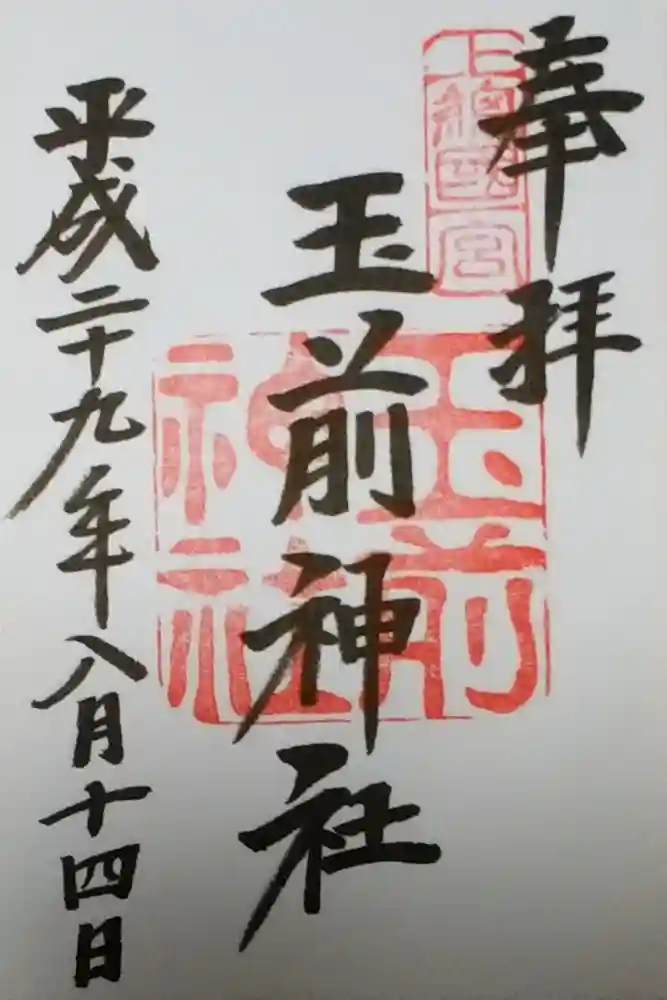 奉拝
上總國一宮
玉前神社
玉前神社
平成二十九年八月十四日